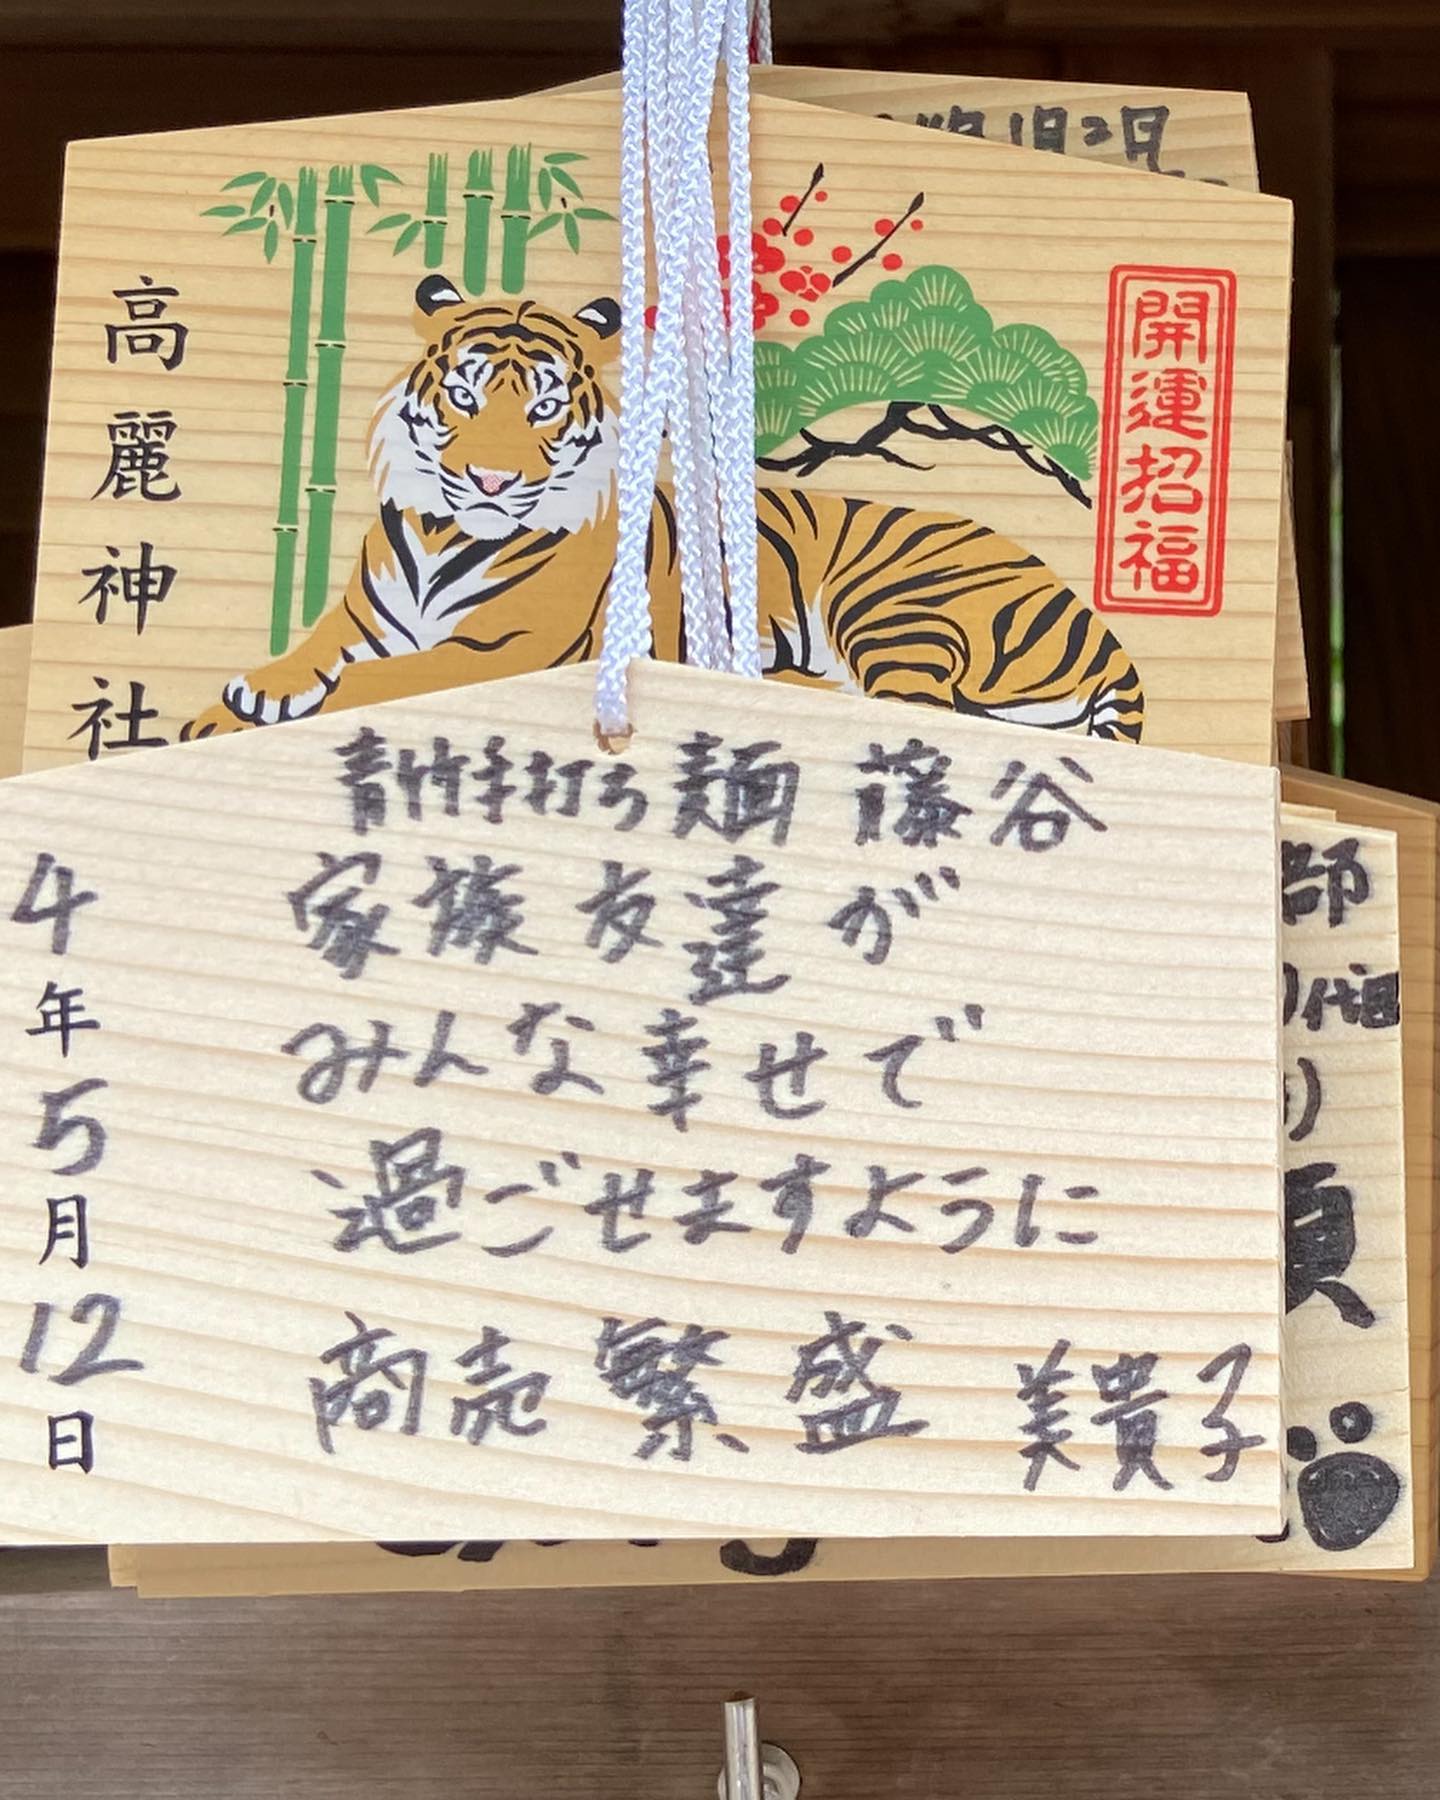 月2日
高麗神社
開運招福
青竹手打ち麺 藤谷
家族友達が
みんな幸せで
過ごせますように
商売繁盛 美貴子
4年5月12日
部
代目